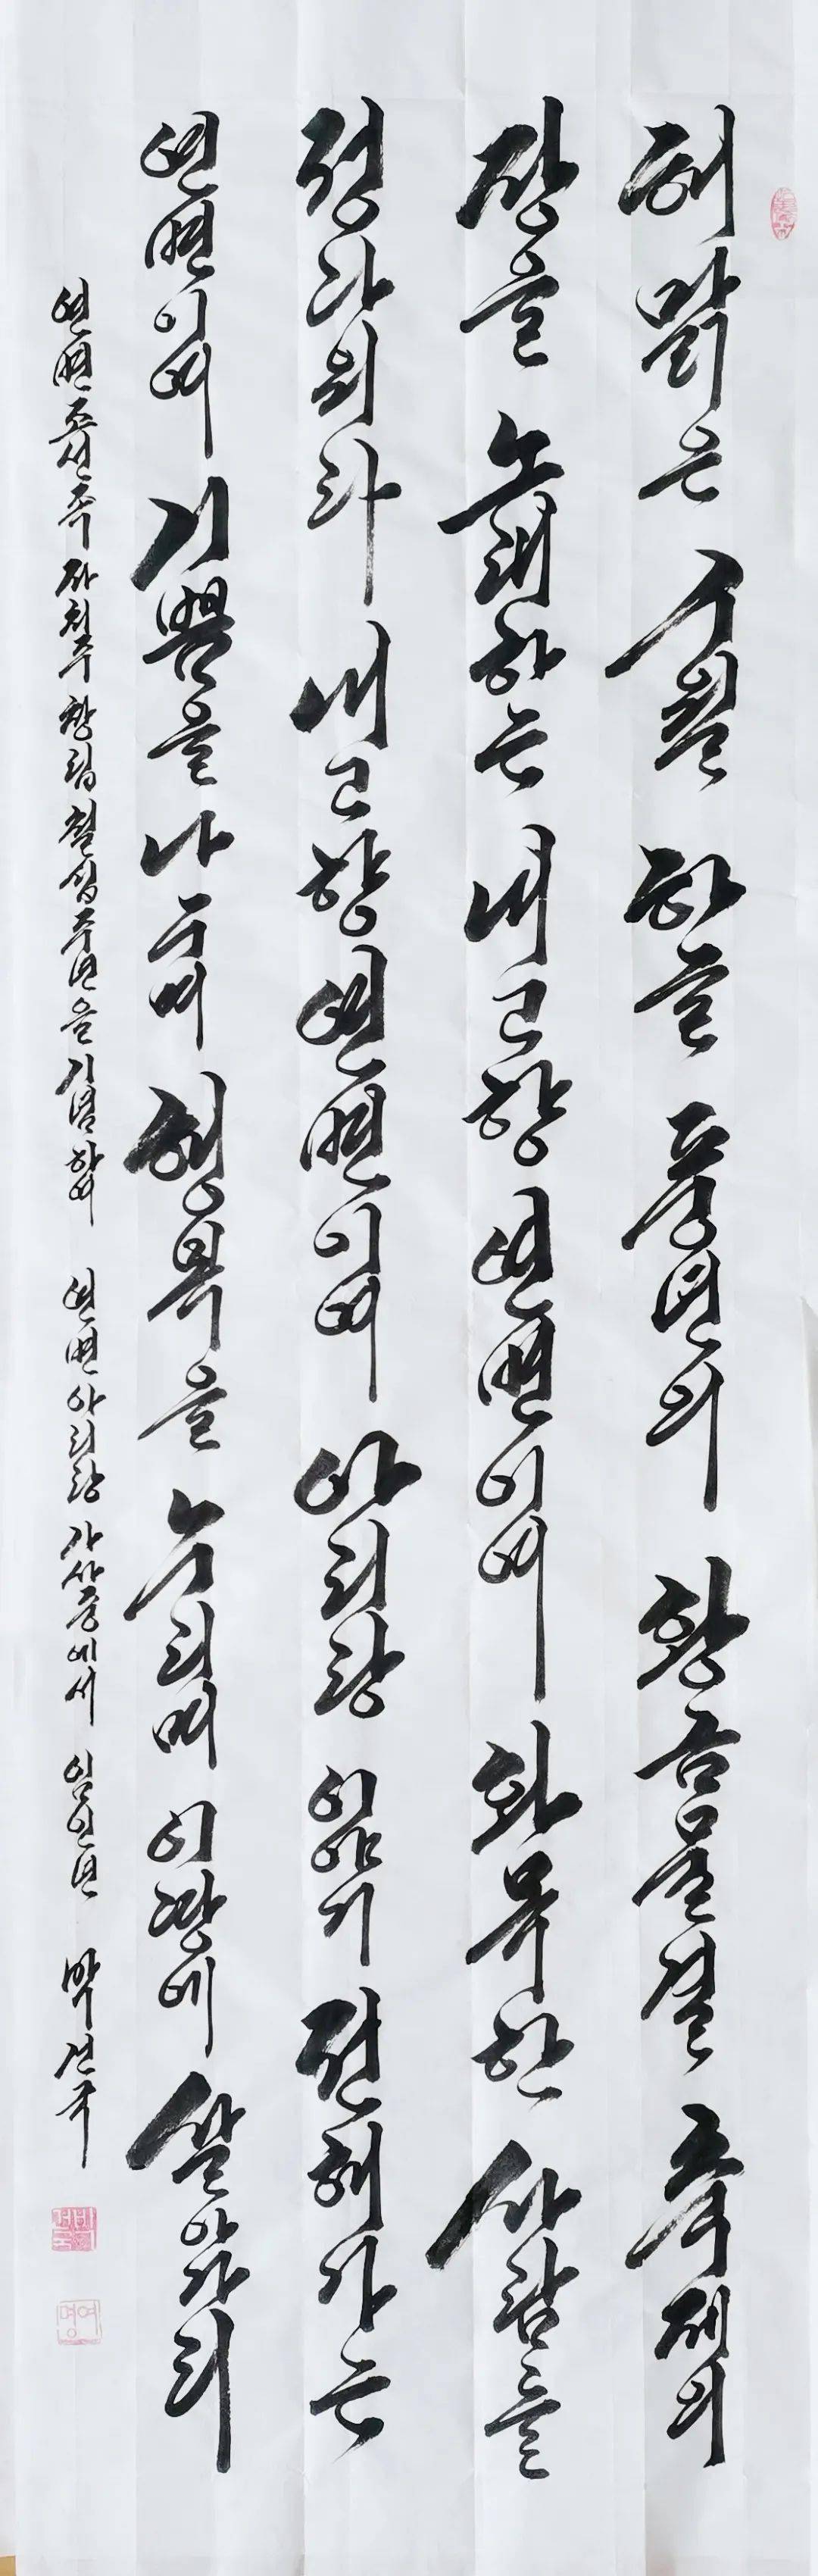 해맑은 하늘 풍년의 황금물결 축제의
장을 노래하는 내고향 연변이여 화목한 사람들
정다워라 내고향 연변이여 아리랑 이야기 전해가는
연변이여 기쁨을 나누며 행복을 누리며 이땅에 살아가리
연변조선족자치주 창립 칠십주년을 기념하여 연변아리랑 가사중에서 임인년 박
여명